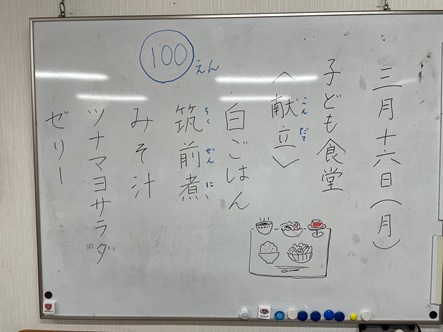 三月十六日(月)
子ども食堂
〈献立〉
こんだて
白ごはん
筑前煮
ちくぜんに
みそ汁
ツナマヨサラダ
ゼリー
100えん